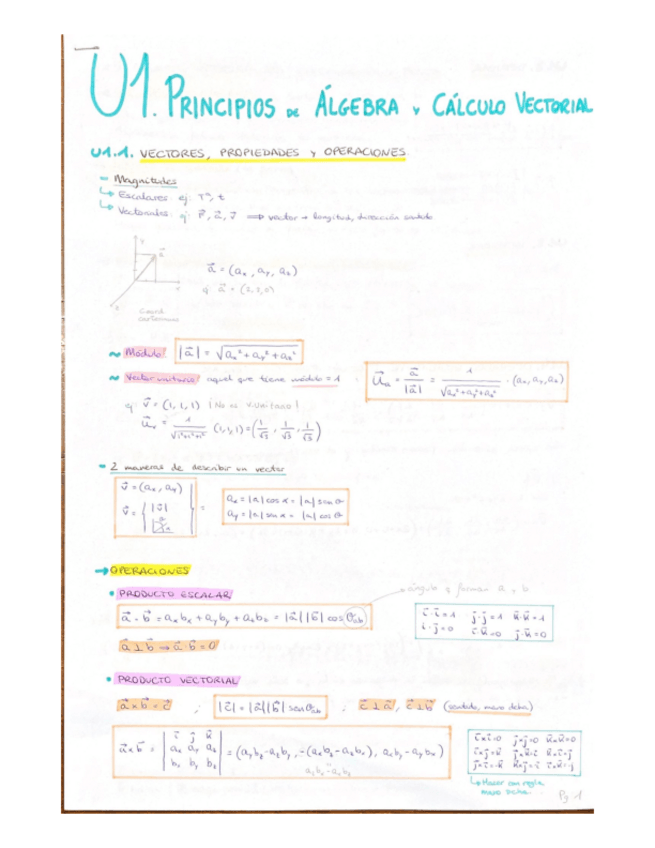 U1. PRINCIPIOS DE ÁLGEBRA Y CÁLCULO VECTORIAL
U1.1. VECTORES, PROPIEDADES Y OPERACIONES
- Magnitudes
↳ Escalares: ej: Tª, t
↳ Vectoriales: ej: F⃗, a⃗, v⃗ ⟹ vector → longitud, dirección, sentido
a⃗ = (aₓ, a_y, a_z)
ej: a⃗ = (3,2,0)
Coord. cartesianas
~ Módulo: |a⃗| = √(aₓ² + a_y² + a_z²)
~ Vector unitario: aquel que tiene módulo = 1
U⃗ₐ = a⃗/|a⃗| = 1/√(aₓ²+a_y²+a_z²) · (aₓ, a_y, a_z)
ej: v⃗ = (1,1,1) ¡No es v.unitario!
U⃗ᵥ = 1/√(1²+1²+1²) (1,1,1) = (1/√3, 1/√3, 1/√3)
- 2 maneras de describir un vector
v⃗ = (aₓ, a_y)
v⃗ = { |v⃗|
=
aₓ = |a| cos α = |a| sen θ
a_y = |a| sin α = |a| cos θ
→ OPERACIONES
• PRODUCTO ESCALAR
ángulo q forman a y b
a⃗ · b⃗ = aₓbₓ + a_yb_y + a_zb_z = |a⃗||b⃗| cos θ_ab
i⃗·i⃗=1 j⃗·j⃗=1 k⃗·k⃗=1
i⃗·j⃗=0 i⃗·k⃗=0 j⃗·k⃗=0
a⃗ ⊥ b⃗ ⟹ a⃗·b⃗ = 0
• PRODUCTO VECTORIAL
a⃗×b⃗ = c⃗ ; |c⃗| = |a⃗||b⃗| sen θ_ab ; c⃗ ⊥ a⃗, c⃗ ⊥ b⃗ (sentido, mano dcha)
a⃗×b⃗ = | i⃗ j⃗ k⃗ |
| aₓ a_y a_z |
| bₓ b_y b_z |
= (a_yb_z - a_zb_y, -(aₓb_z - a_zbₓ), aₓb_y - a_ybₓ)
a_zbₓ - aₓb_z
i⃗×i⃗=0 j⃗×j⃗=0 k⃗×k⃗=0
i⃗×j⃗=k⃗ j⃗×k⃗=i⃗ k⃗×i⃗=j⃗
j⃗×i⃗=-k⃗ k⃗×j⃗=-i⃗ i⃗×k⃗=-j⃗
↳ Hacer con regla
mano dcha.
Pg 1